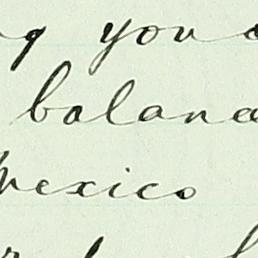 you
balanc
Mexico